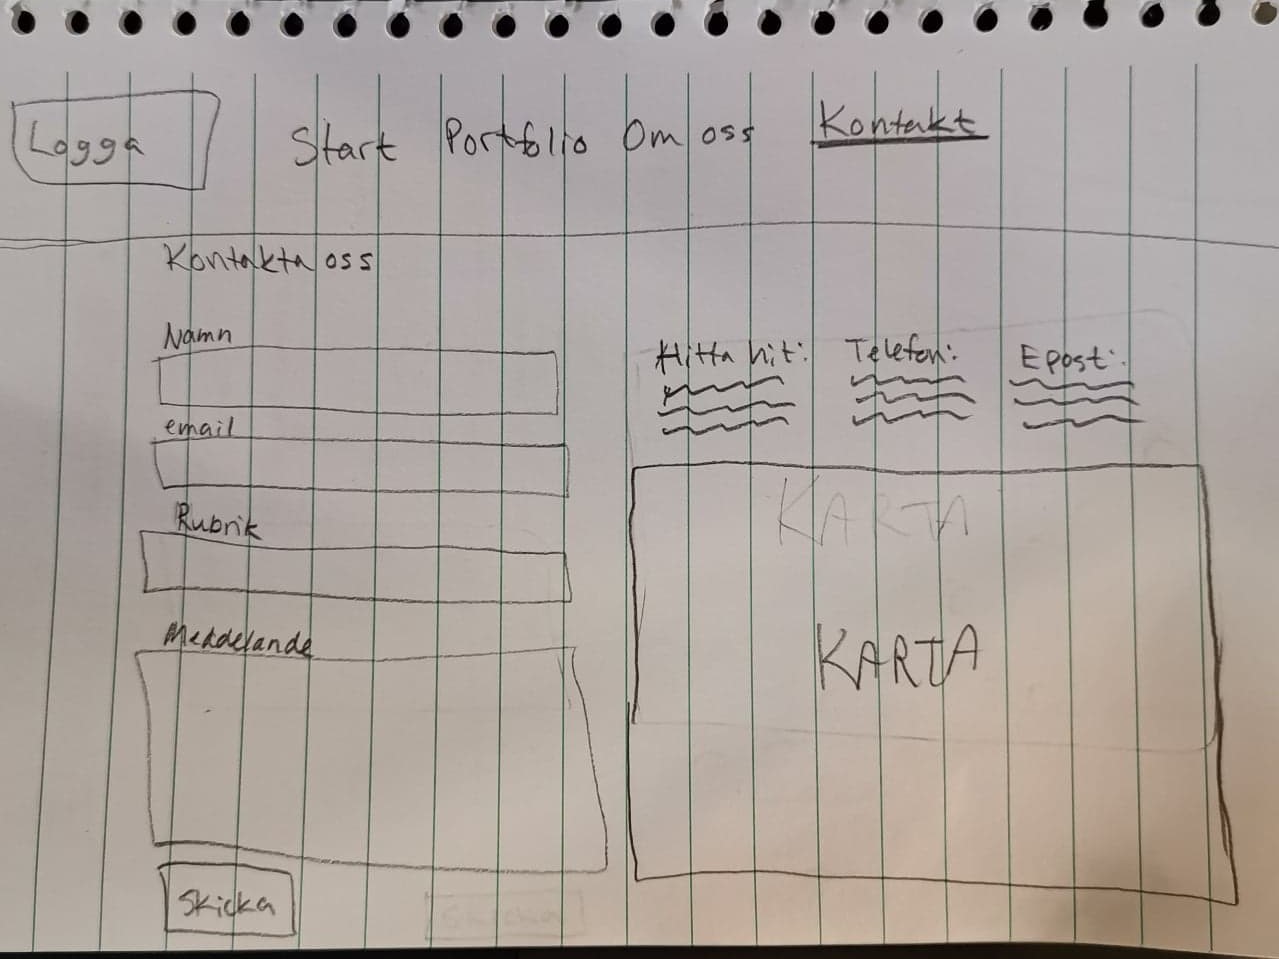 Logga Start Portfolio Om oss Kontakt
Kontakta oss
Namn
email
Rubrik
Meddelande
Skicka
Skicka
Hitta hit: Telefon: Epost:
KARTA
KARTA